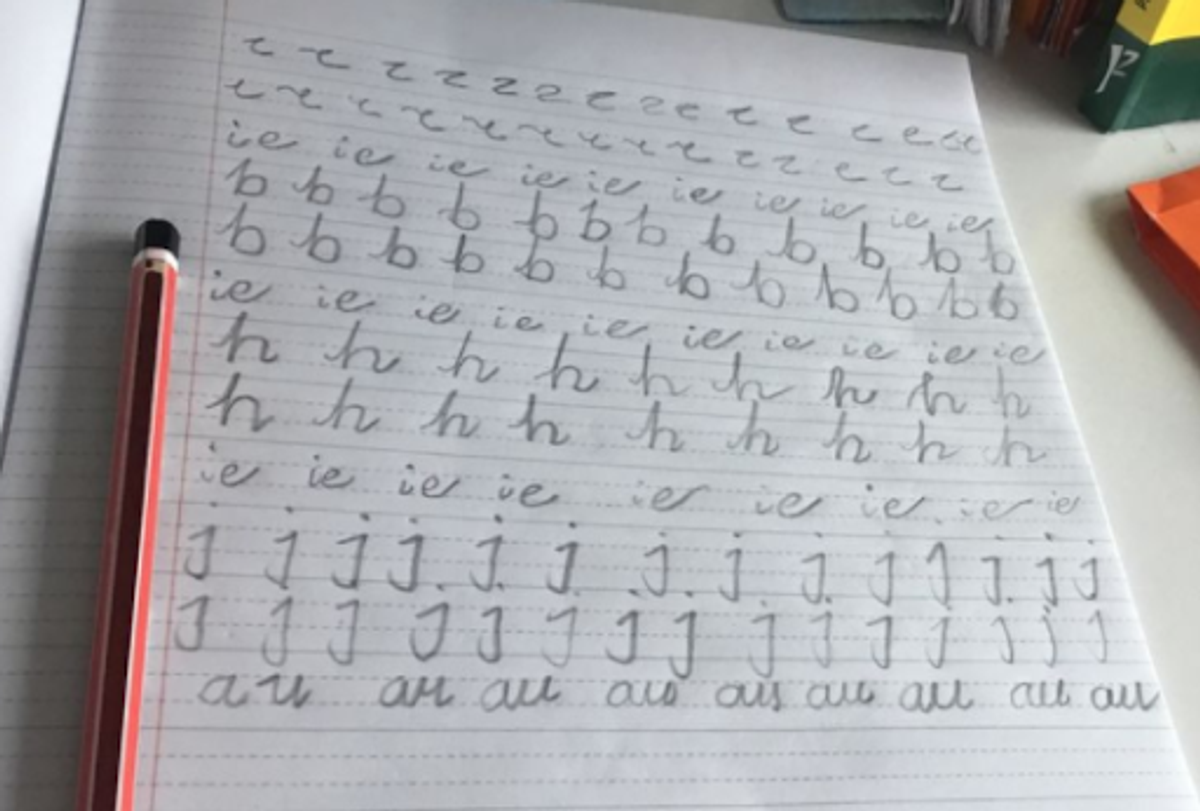 ie ie ie ie ie ie ie ie ie ie
b b b b b b b b b b b b
b b b b b b b b b b b b
ie ie ie ie ie ie ie ie ie ie
h h h h h h h h h
h h h h h h h h h
ie ie ie ie ie ie ie ie ie
j j j j j j j j j j j j j j
j j j j j j j j j j j j j j j
au au au au au au au au au